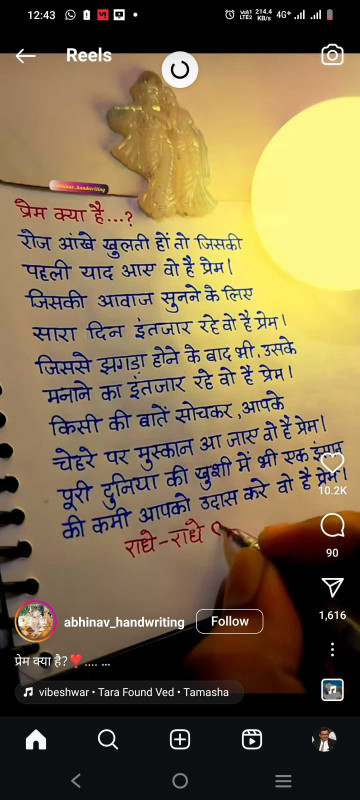 12:43
Vo1
LTE2
214.4
KB/s
4G+
Reels
abhinav_handwriting
प्रेम क्या है...?
रोज आंखे खुलती हों तो जिसकी
पहली याद आए वो है प्रेम।
जिसकी आवाज सुनने के लिए
सारा दिन इंतजार रहे वो है प्रेम।
जिससे झगड़ा होने के बाद भी, उसके
मनाने का इंतजार रहे वो है प्रेम।
किसी की बातें सोचकर, आपके
चेहरे पर मुस्कान आ जाए वो है प्रेम।
पूरी दुनिया की खुशी में भी एक इंसान
की कमी आपको उदास करे वो है प्रेम।
राधे-राधे
10.2K
90
1,616
abhinav_handwriting
Follow
प्रेम क्या है?❤️.... ...
vibeshwar • Tara Found Ved • Tamasha